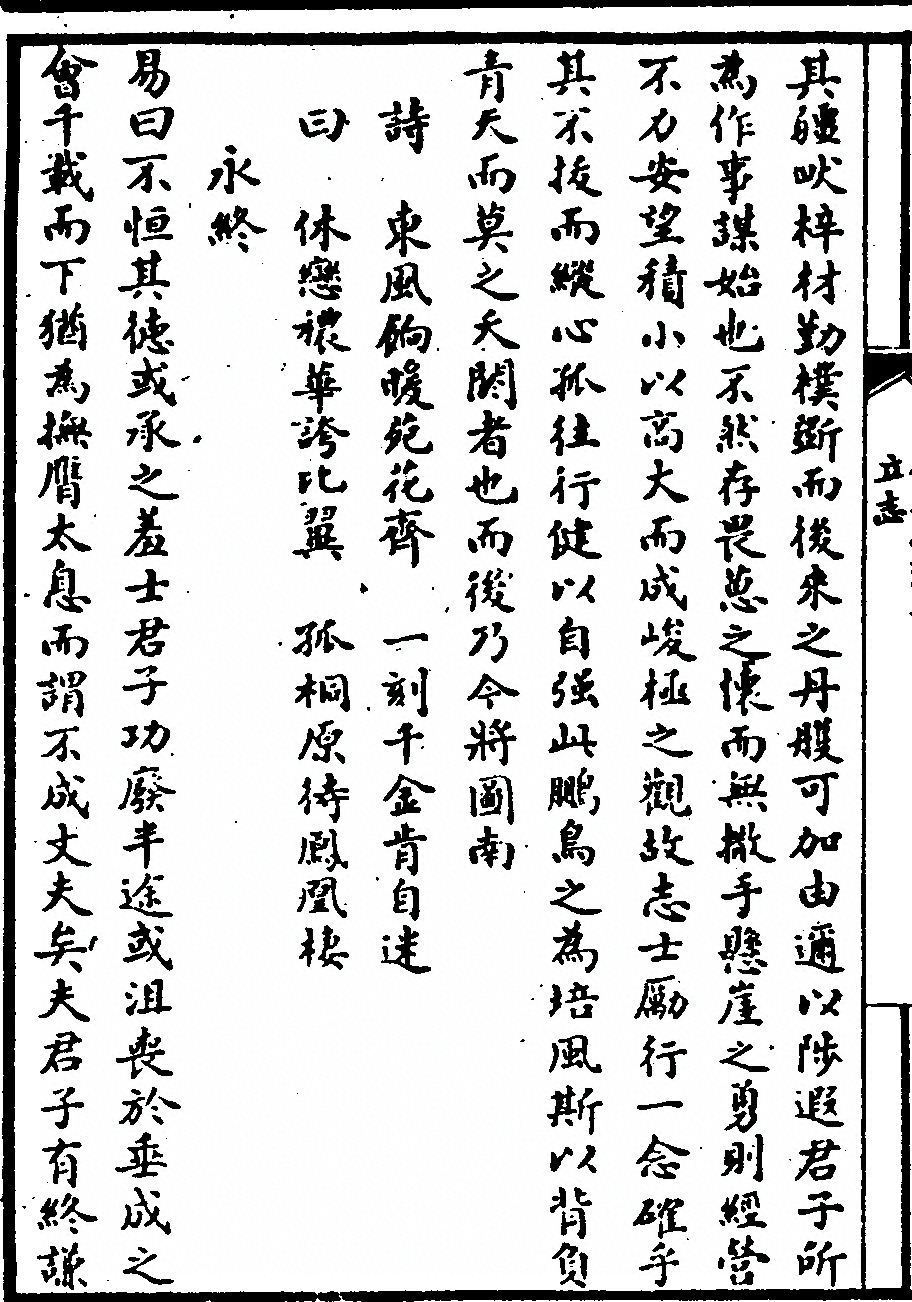 立志
其疆畎梓材勤樸斲而後來之丹雘可加由邇以陟遐君子所
為作事謀始也不然存畏葸之懷而無撒手懸崖之勇則經營
不力安望積小以高大而成峻極之觀故志士勵行一念確乎
其不拔而縱心孤往行健以自强此鵬鳥之為培風斯以背負
青天而莫之夭閼者也而後乃今將圖南
詩　東風餉暖苑花齊　一刻千金肯自迷
曰　休戀穠華誇比翼　孤桐原待鳳凰棲
永終
易曰不恒其德或承之羞士君子功廢半途或沮喪於垂成之
會千載而下猶為撫膺太息而謂不成丈夫矣夫君子有終謙